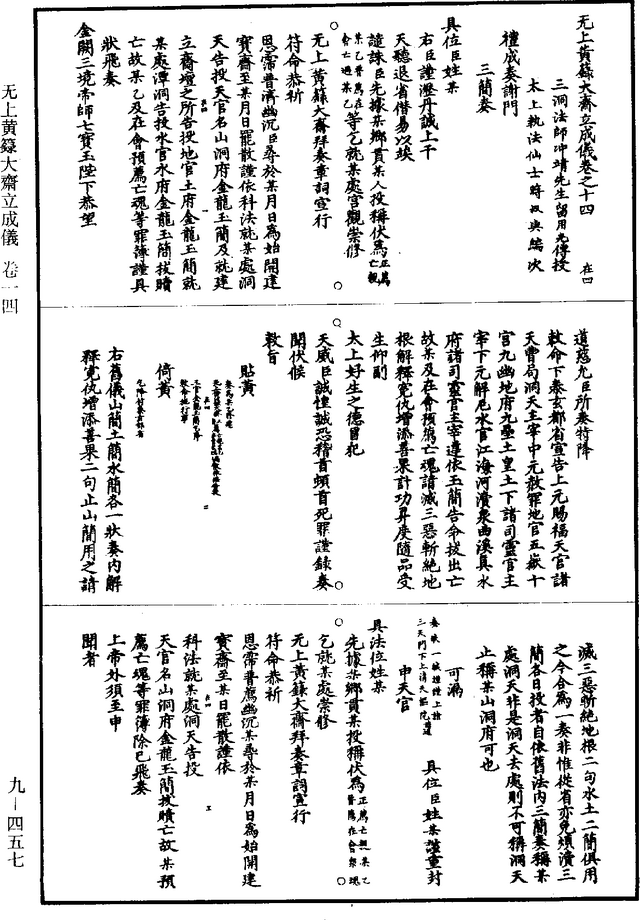 无上黃籙大齋立成儀卷之十四 在四
三洞法師冲靖先生留用光傳授
太上執法仙士蔣叔輿編次
禮成奏謝門
三簡奏
具位臣姓某
右臣謹瀝丹誠上干
天聽退省僭易以竢
譴誅臣先據某鄉貫某人投稱伏為正薦亡親
某乙普薦在會亡過某乙等乞就某處宮觀崇修
无上黃籙大齋拜奏章詞宣行
符命恭祈
恩霈普濟幽沉臣尋於某月日為始開建
寶齋至某月日罷散謹依科法就某處洞
天告投天官名山洞府金龍玉簡及就建
立齋壇之所告投地官土府金龍玉簡就
某處潭洞告投水官水府金龍玉簡拔贖
亡故某乙及在會預薦亡魂等罪簿謹具
狀飛奏
金闕三境帝師七寶玉陛下恭望
道慈允臣所奏特降
敕命下泰玄都省宣告上元賜福天官諸
天曹局洞天主宰中元赦罪地官五嶽十
宮九幽地府九壘土皇土下諸司靈官主
宰下元解厄水官江海河瀆泉曲溪具水
府諸司靈官主宰遵依玉簡告命拔出亡
故某及在會預薦亡魂請滅三惡斬絕地
根解釋冤仇增添善果計功昇度隨品受
生仰副
太上好生之德冒犯
天威臣誠惶誠恐稽首頓首死罪謹錄奏
聞伏候
敕旨
貼黃
倚黃
右舊儀山簡土簡水簡各一狀奏內解
釋冤仇增添善果二句止山簡用之請
滅三惡斬絕地根二句水土二簡俱用
之今合為一奏非惟從省亦免煩瀆三
簡各日投者自依舊法內三簡奏稱某
處洞天非是洞天去處則不可稱洞天
止稱某山洞府可也
可漏
三天門下上清天樞院
具位臣姓某謹重封
申天官
具法位姓某
先據某鄉貫某投稱伏為正薦亡親某乙
普薦在會眾魂
乞就某處崇修
无上黃籙大齋拜奏章詞宣行
符命恭祈
恩霈普薦幽沉某尋於某月日為始開建
寶齋至某月日罷散謹依
科法就某處洞天告投
天官名山洞府金龍玉簡拔贖亡故某預
薦亡魂等罪簿除已飛奏
上帝外須至申
聞者
无上黄籙大齋立成儀 卷一四
九—四五七